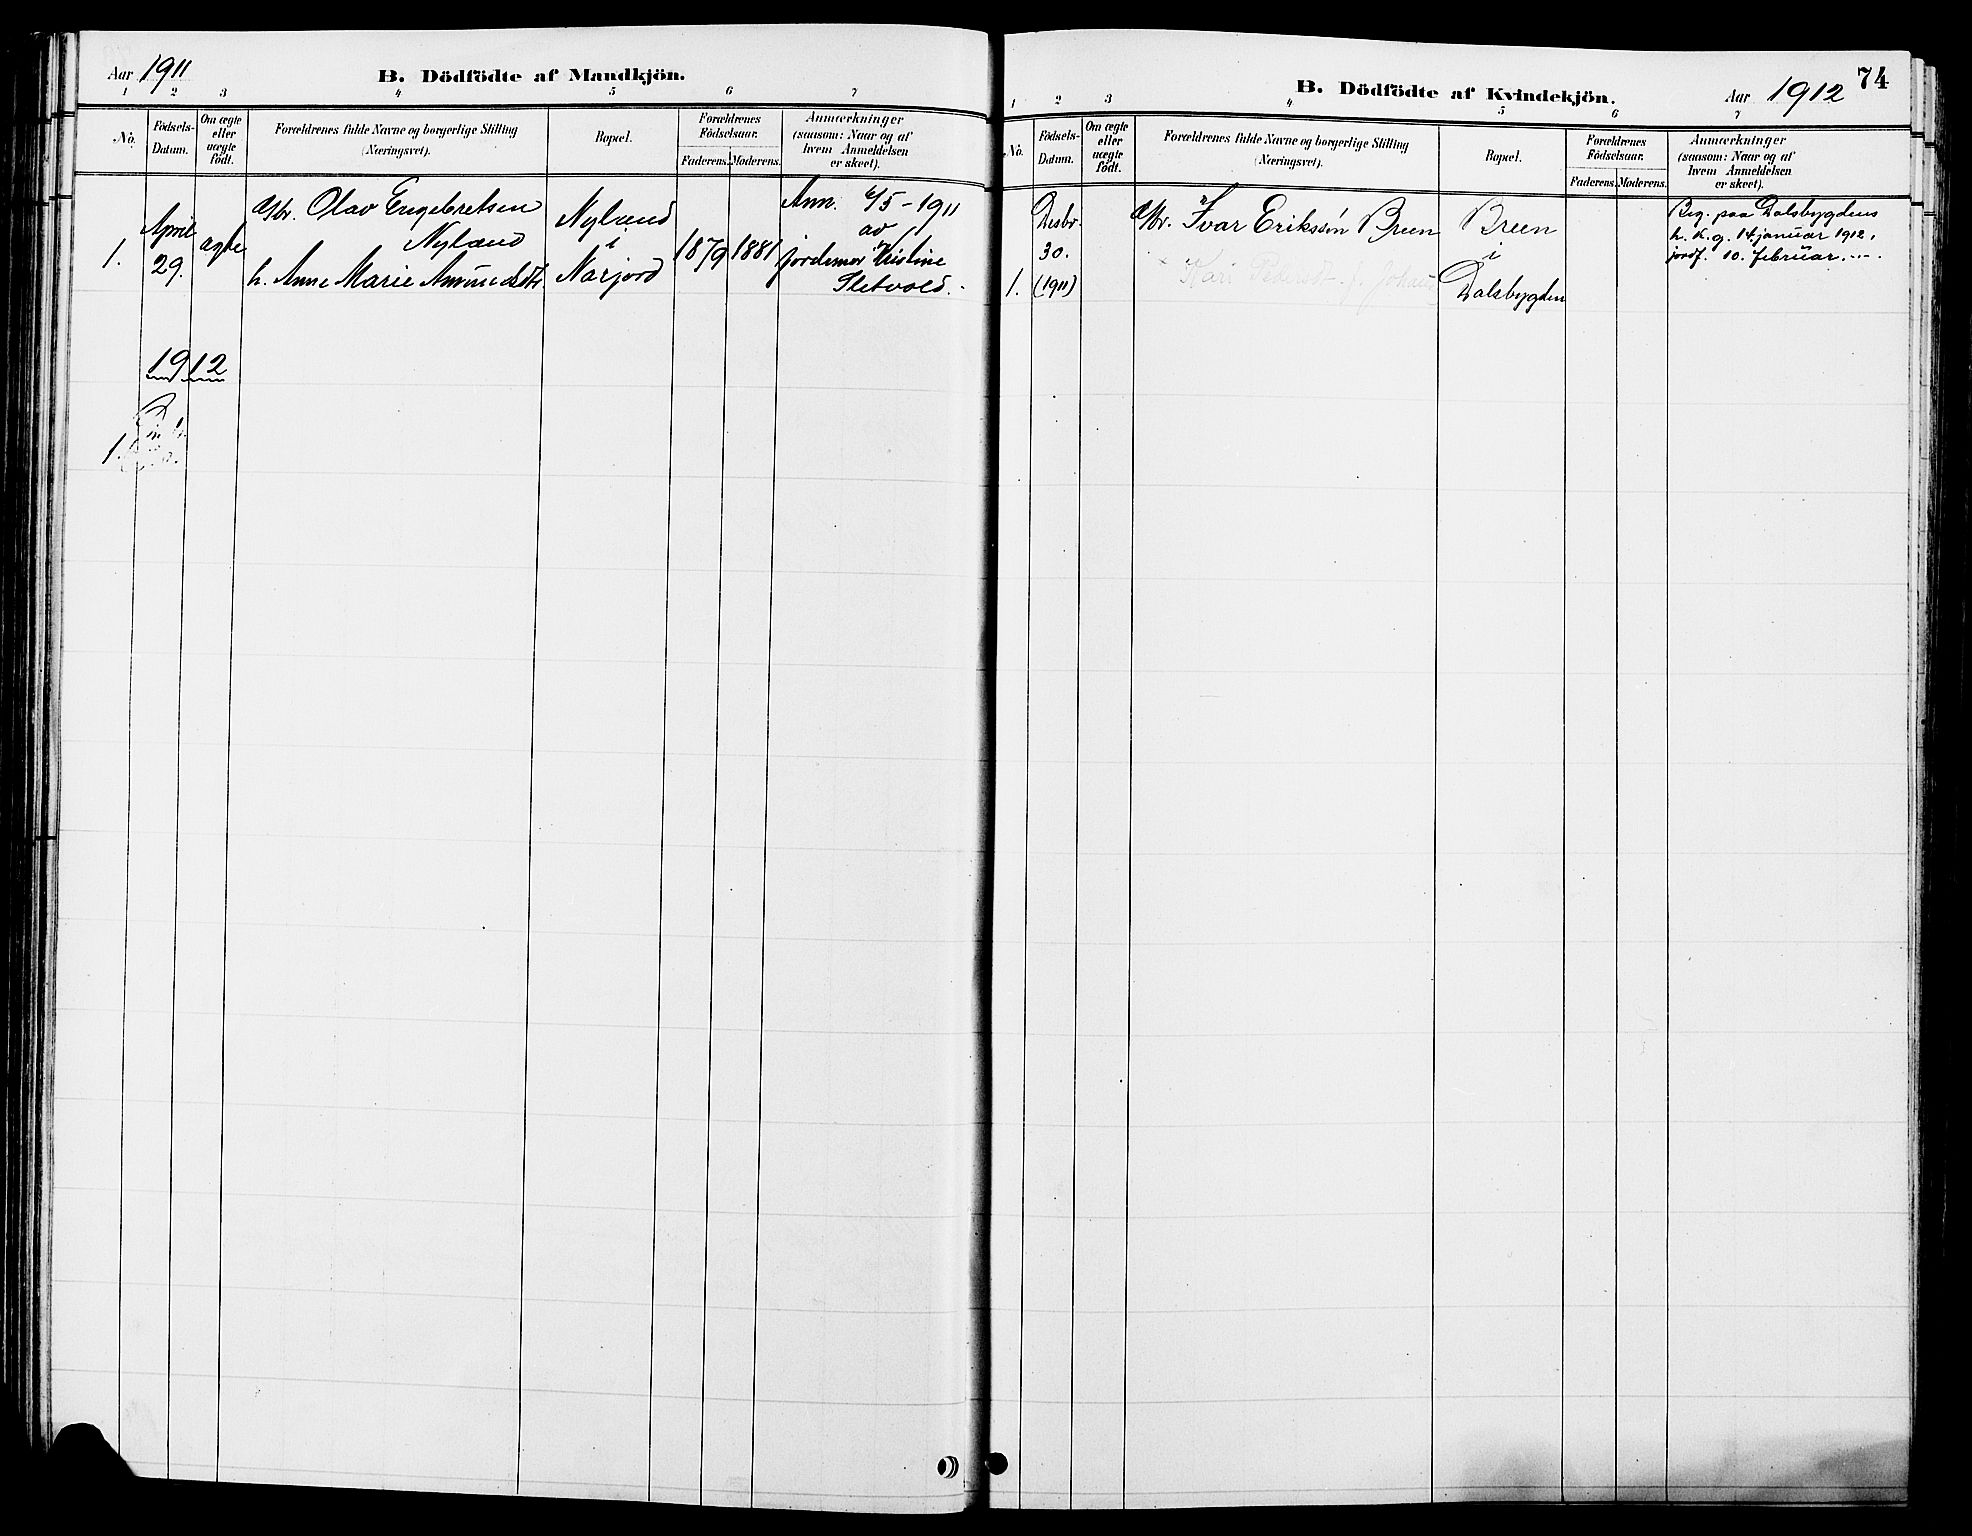 Aar 1911
B. Dödfödte af Mandkjön.
1 2 3 4 5 6 7
No.
Födsels-
Datum.
Om ægte
eller
uægte
født.
Forældrenes fulde Navne og borgerlige Stilling
(Næringsvei).
Bopæl.
Forældrenes
Födselsaar.
Faderens. Moderens.
Anmærkninger
(saasom: Naar og af
hvem Anmeldelsen
er skeet).
1.
April
29.
ægte
Gbr. Olav Engebretsen
Nyland
h. Anne Marie Amundsdtr
Nyland
i
Narjord
1879 1881
Ann. 6/5 - 1911
av
jordemor Kristine
Sletvold.
1912
1.
74
B. Dödfödte af Kvindekjön.
Aar 1912
1 2 3 4 5 6 7
No.
Födsels-
Datum.
Om ægte
eller
uægte
födt.
Forældrenes fulde Navne og borgerlige Stilling
(Næringsvei).
Bopæl.
Forældrenes
Födselsaar.
Faderens. Moderens.
Anmærkninger
(saasom: Naar og af
hvem Anmeldelsen
er skeet).
1.
Desbr.
30.
(1911)
Gbr. Ivar Eriksen Breen
Kari Pedersdt. f. Johans
Breen
i
Dalsbygden
Beg. paa Dalsbygdens
h. k. g. 14 januar 1912,
jordf. 10. februar. -..-